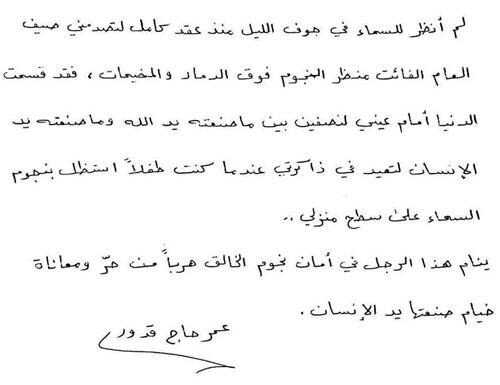 لم أنظر للسماء في جوف الليل منذ عقد كامل لتصدمني صيف
العام الفائت منظر النجوم فوق الدمار والمخيمات ، فقد قسمت
الدنيا أمام عيني لنصفين بين ماصنعته يد الله وماصنعته يد
الإنسان لتعيد في ذاكرتي عندما كنت طفلاً استظل بنجوم
السماء على سطح منزلي ..
ينام هذا الرجل في أمان نجوم الخالق هرباً من حرّ ومعاناة
خيام صنعتها يد الإنسان .
عمر حاج قدور